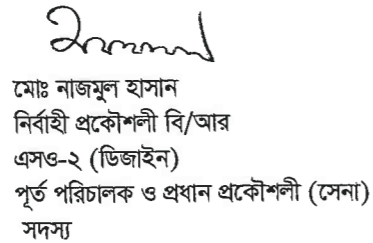 মোঃ নাজমুল হাসান
নির্বাহী প্রকৌশলী বি/আর
এসও-২ (ডিজাইন)
পূর্ত পরিচালক ও প্রধান প্রকৌশলী (সেনা)
সদস্য